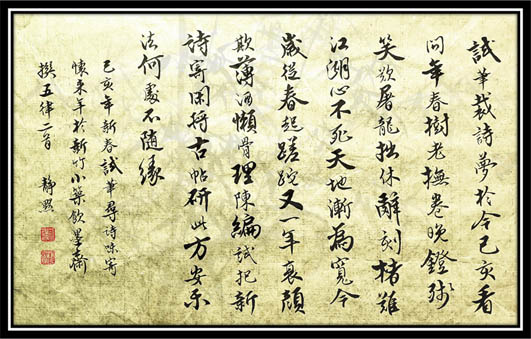 試筆裁詩夢於今己亥看
問年春樹老撫卷晚鐙殘
笑欲屠龍拙休辭刻楮難
江湖心不死天地漸為寬今
歲從春起蹉跎又一年衰顏
欺薄酒懶骨理陳編試把新
詩寄閑將古帖研此方安樂
法何處不隨緣
己亥年新春試筆尋詩味寄
懷來年於新竹小築飲墨齋
撰五律二首 靜